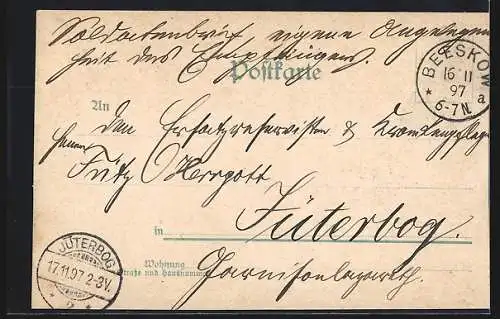 Soldatenbrief, eigene Angelegen
heit des Empfängers.
Postkarte
BEESKOW
16 11
97
* a
6-7N.
An
den Ersatzreservisten & Krankenpfleger
Herrn
Fritz Herrpott
in Jüterbog.
Wohnung
(Straße und Hausnummer)
Garnisonlazareth.
JÜTERBOG
17.11.97 2-3V.
* 2 *